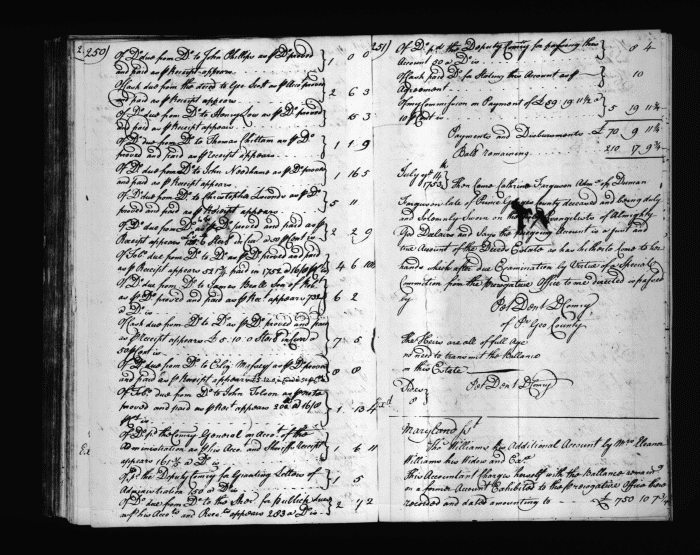 250
Of Do due from Do to John Phillips as pr Do proved
and paid as pr Receipt appears } 1 0 0
Of Cash due from the decd to Geo as pr Acct proved
and paid as pr Receipt appears } 2 6 3
Of Do due from Do to Henry Low as pr Do proved
and paid as pr Receipt appears } 15 3
Of Do due from Do to Thomas Chittam as pr Do
proved and paid as pr Receipt appears } 1 1 9
Of Do due from Do to John Needham as pr Do proved
and paid as pr Receipt appears } 1 16 5
Of Do due from Do to Christopher as pr Do
proved and paid as pr Receipt appears } 5 11
Of Do due from Do to Do as pr Do proved and paid as pr
Receipt appears } 2 2 9
Of Tobo due from Do to Do as pr Do proved and paid
as pr Receipt appears 521 lb paid in 1752 } 4 6
Of Do due from Do to James Beall Son of
as pr Do proved and paid as pr Rect appears
a Do is } 6 2
Of Cash due from Do to Do as pr Do proved and paid
as pr Receipt appears £5 10 0
50 pr Cent is } 7 5
Of Do due from Do to as pr Do proven
and paid as pr Receipt appears } 8 8
Of Tobo due from Do to John as pr note
proved and paid as pr Rect appears
pr Ct is } 1 13 4
Of Do pd the Comry General on Acct of the
Administration as pr his Acct and Sheriffs Receipt
appears a Do is } 1 6 11
Of pd the Deputy Comry for Granting Letters of
Administration 150 a Do is } 1 5
Of Do due from Do to the Sher for publick dues
as pr his Accts and Rects appears 283 a Do is } 2 7 2
251
Of Do pd the Deputy Comry for passing this
Account 50 a Do is } 8 4
Of Cash paid Do for Stating this Account as pr
Agreement } 10
Of my Commission on Payment of £59 19 11½ a
10 pr Ct is } 5 19 11¾
Payments and Disbursements £70 9 11¾
Balla remaining 210 17 9¾
July 9th
1753 Then Came Cathrine Ferguson Admx of Duncan
Ferguson late of Prince Georges County deceased and being duly
and Solemnly Sworn on the Holy Evangelists of Almighty
God Declares and Says the foregoing Account is a just and
true Account of the Deced Estate as has hitherto Come to her
hands which after due Examination by Virtue of a Special
Commission from the Prerogative Office to me directed is passed
by
Pet Dent D Comry
of Pr Geo County
The Heirs are all of full Age
no need to transmit the Ballance
on this Estate
Pet Dent D Comry
Maryland sst
Tho Williams his Additional Account by Mrs Eleanor
Williams his Widow and Exx
This Accountant Charges herself with the Ballance remaing
on a former Account Exhibited to the Prerogative Office there
recorded and dated amounting to £ 750 10 7¾